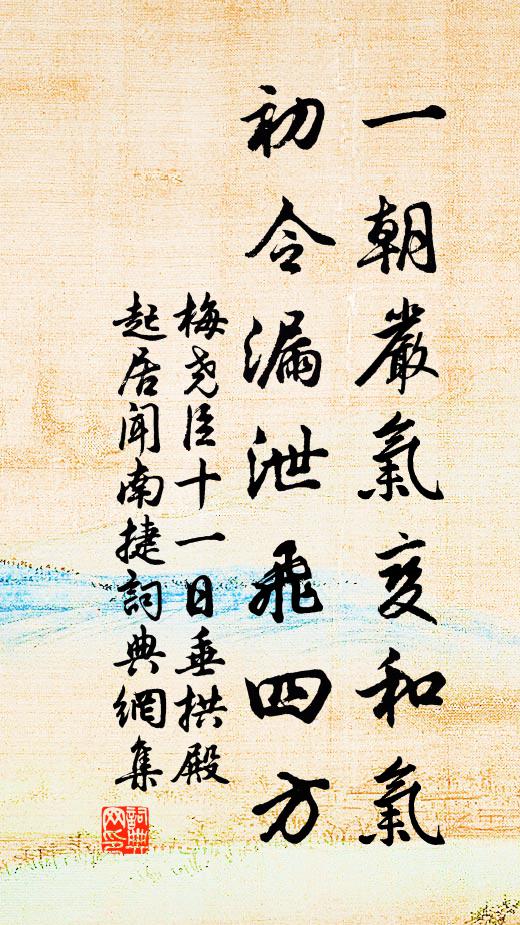 一朝嚴氣変和氣
初令漏泄飛四方
梅堯臣十一日垂拱殿
起居聞南捷詞典網集
詞典
网印